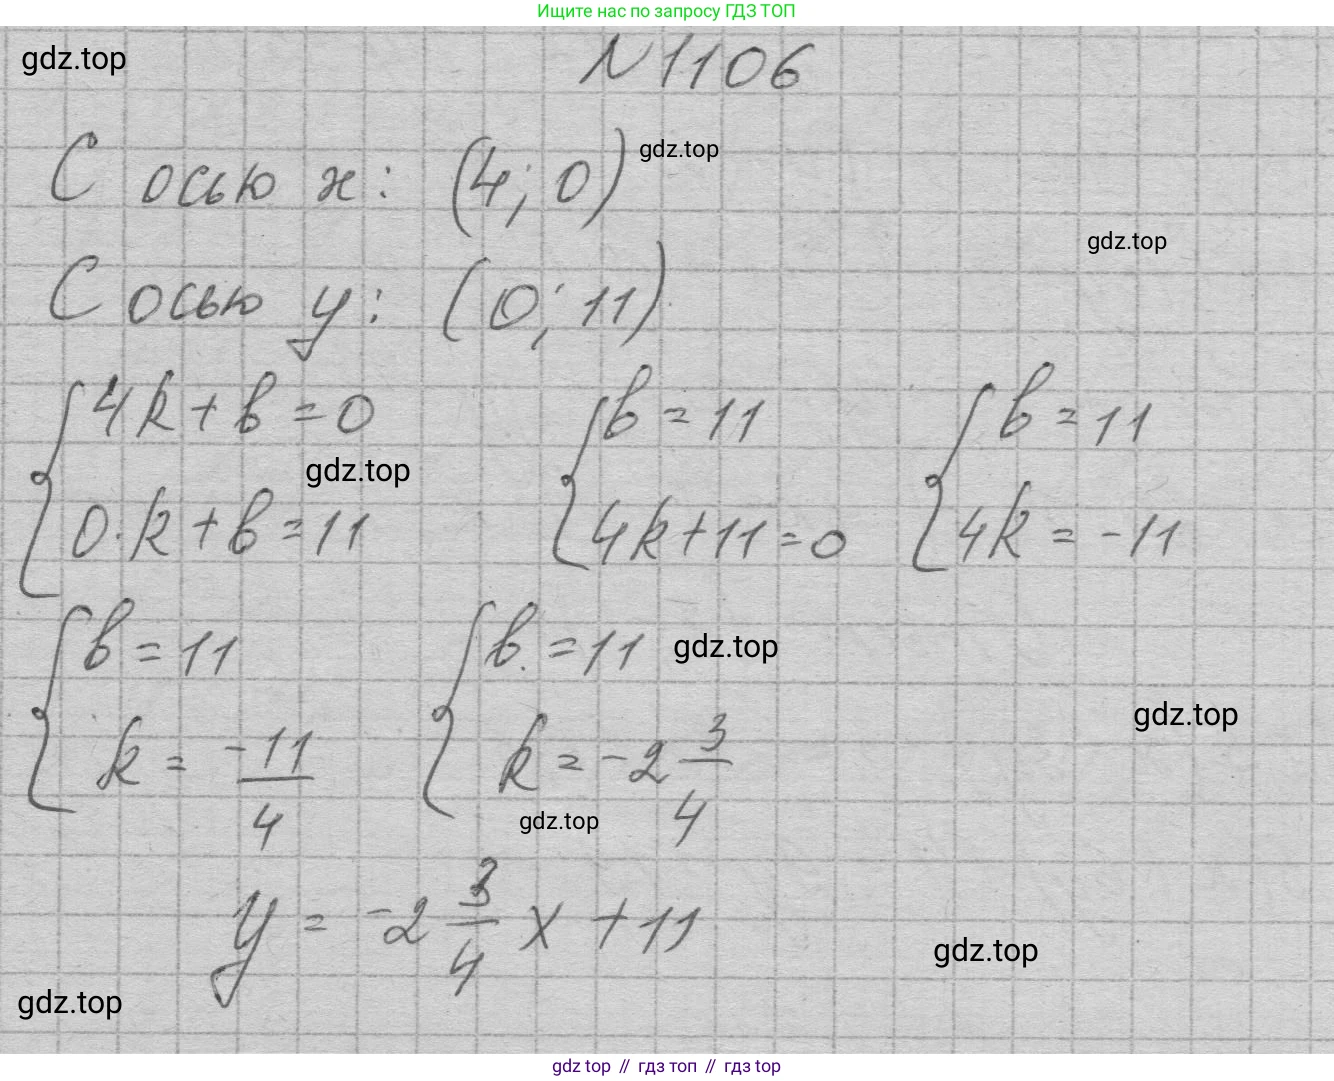 Ищите нас по запросу ГДЗ ТОП
gdz.top
N1106
С осью x: (4; 0)
gdz.top
gdz.top
С осью y: (0; 11)
{4k+b=0 {b=11 {b=11
gdz.top
0·k+b=11 4k+11=0 4k=-11
{b=11 {b=11
gdz.top
gdz.top
k=-11/4 k=-2 3/4
gdz.top
y=-2 3/4 x+11
gdz.top
gdz.top
gdz top // гдз топ // гдз top